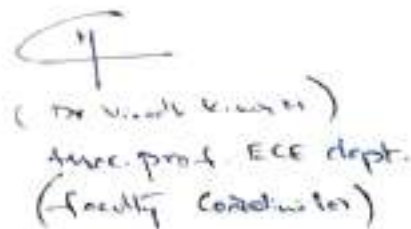 ( Dr Vinoth Kumar )
Assoc. prof. ECE dept.
(faculty Coordinator)